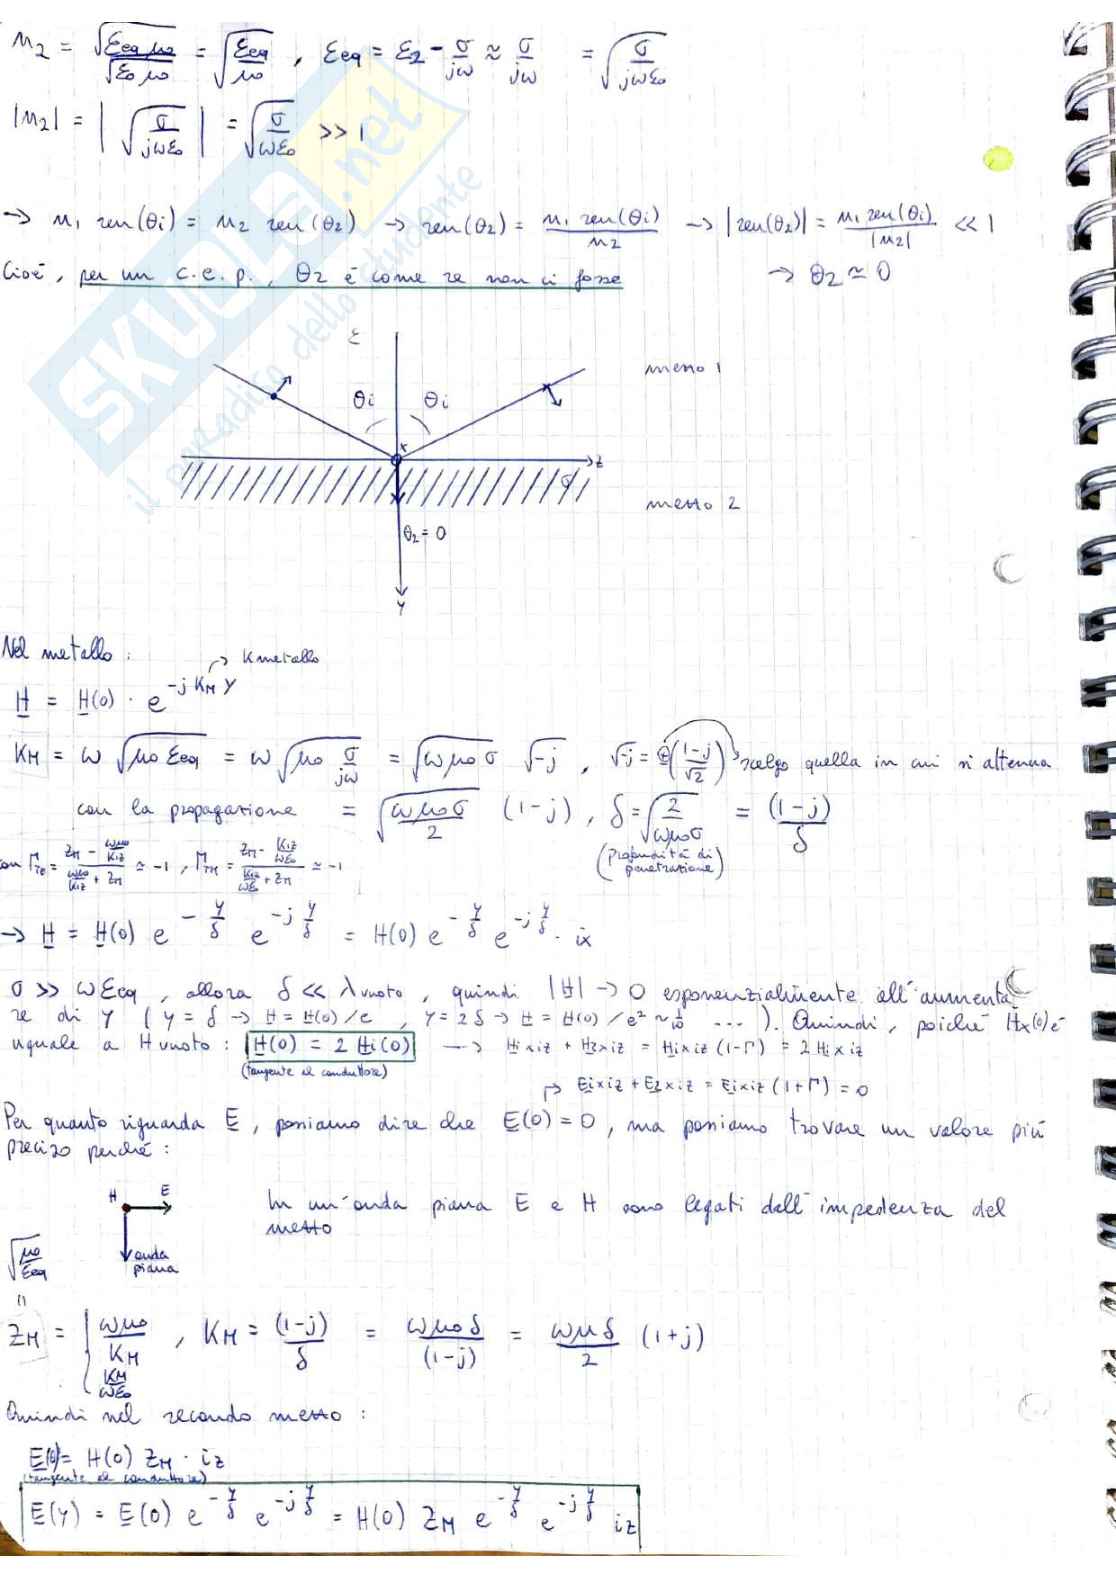 n₂ = √(εeq μ₀) / √(ε₀ μ₀) = √(εeq / μ₀) , εeq = ε₂ - σ/jω ≈ σ/jω = √(σ / jωε₀)
|n₂| = | √(σ / jωε₀) | = √(σ / ωε₀) >> 1
→ n₁ sen(θi) = n₂ sen(θ₂) → sen(θ₂) = n₁ sen(θi) / n₂ → |sen(θ₂)| = n₁ sen(θi) / |n₂| << 1
Cioè, per un c.e.p., θ₂ è come se non ci fosse → θ₂ ≃ 0
ε
mezzo 1
θi θi
x
z
σ
mezzo 2
θ₂ = 0
y
Nel metallo :
→ K metallo
H = H(0) · e^(-j KM y)
KM = ω √(μ₀ εeq) = ω √(μ₀ σ/jω) = √(ωμ₀σ) √-j , √-j = ±((1-j)/√2) scelgo quella in cui si attenua
con la propagazione = √(ωμ₀σ / 2) (1-j) , δ = √(2 / ωμ₀σ) = (1-j)/δ
(profondità di penetrazione)
con ΓTE = (ZM - ωμ₀/K1z) / (ωμ₀/K1z + ZM) ≃ -1 , ΓTM = (ZM - K1z/ωε₀) / (K1z/ωε₀ + ZM) ≃ -1
→ H = H(0) e^(-y/δ) e^(-j y/δ) = H(0) e^(-y/δ) e^(-j y/δ) · ix
σ >> ωεeq , allora δ << λvuoto , quindi |H| → 0 esponenzialmente all'aumenta
re di y ( y = δ → H = H(0)/e , y = 2δ → H = H(0)/e² ≈ 1/10 ... ). Quindi, poiché Hx(0) è
uguale a Hvuoto : H(0) = 2 Hi(0) → Hi x iz + H2 x iz = Hi x iz (1-Γ) = 2 Hi x iz
(tangente al conduttore)
→ Ei x iz + E2 x iz = Ei x iz (1+Γ) = 0
Per quanto riguarda E , possiamo dire che E(0) = 0 , ma possiamo trovare un valore più
preciso perché :
H E
onda
piana
In un'onda piana E e H sono legati dall'impedenza del
mezzo
√(μ₀ / εeq)
"
ZM = { ωμ₀/KM , KM/ωε₀ , KM = (1-j)/δ = ωμ₀δ / (1-j) = ωμδ/2 (1+j)
Quindi nel secondo mezzo :
E(0) = H(0) ZM · iz
(tangente al conduttore)
E(y) = E(0) e^(-y/δ) e^(-j y/δ) = H(0) ZM e^(-y/δ) e^(-j y/δ) iz
SKUOLA.net
il paradiso dello studente